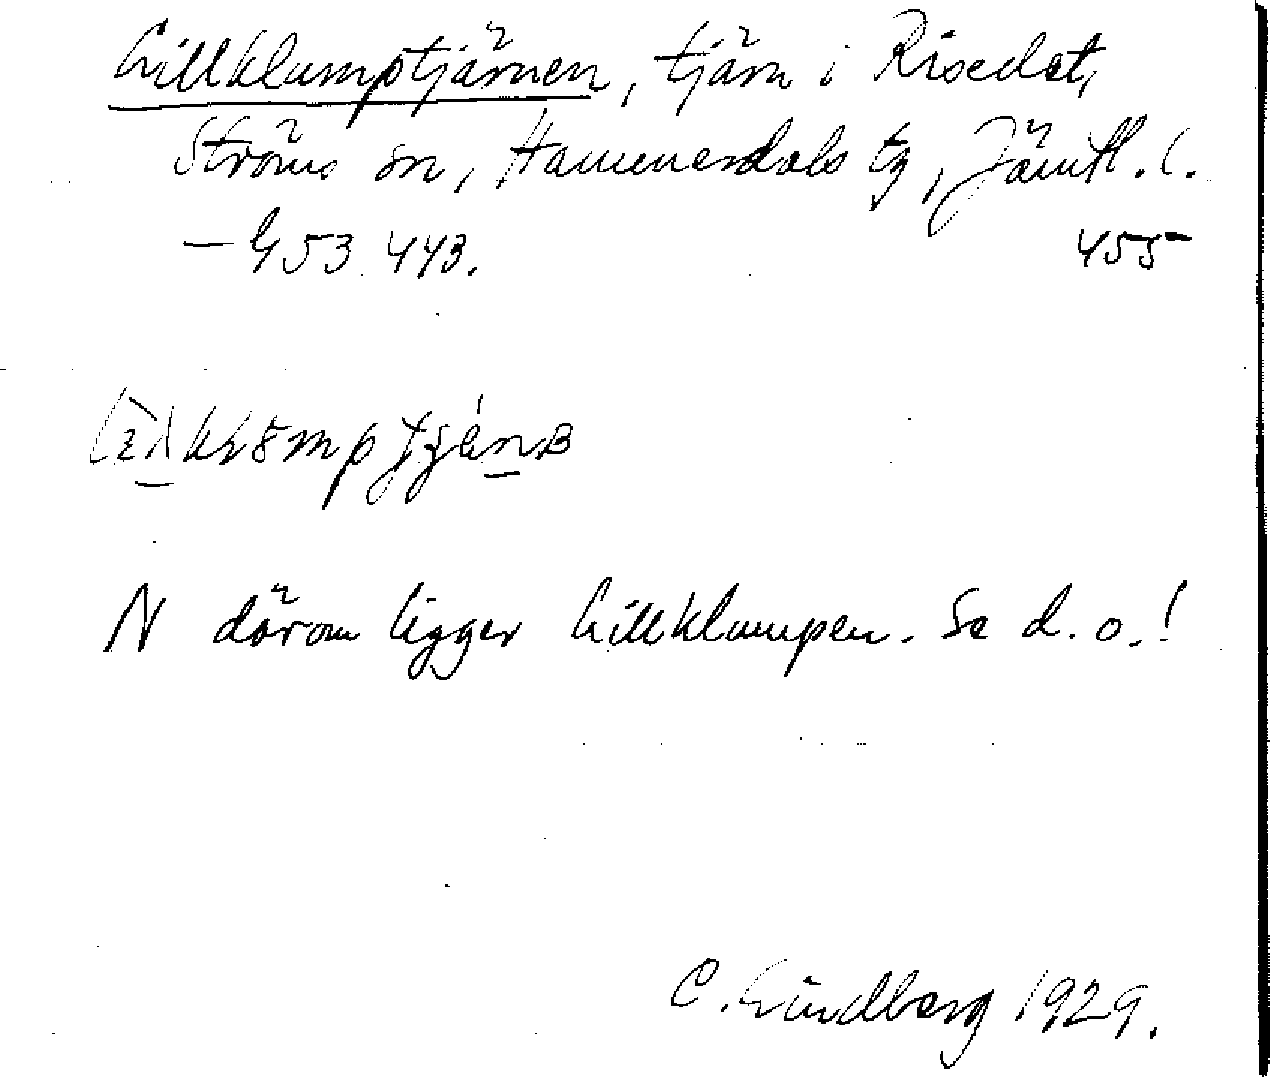 Lillklumptjärnen, tjärn i Risedet,
Ströms sn, Hammerdals tg, Jämtl. l.
— G 53. 443. 455
N därom ligger Lillklumpen. Se d. o.!
C. Lindberg 1929.